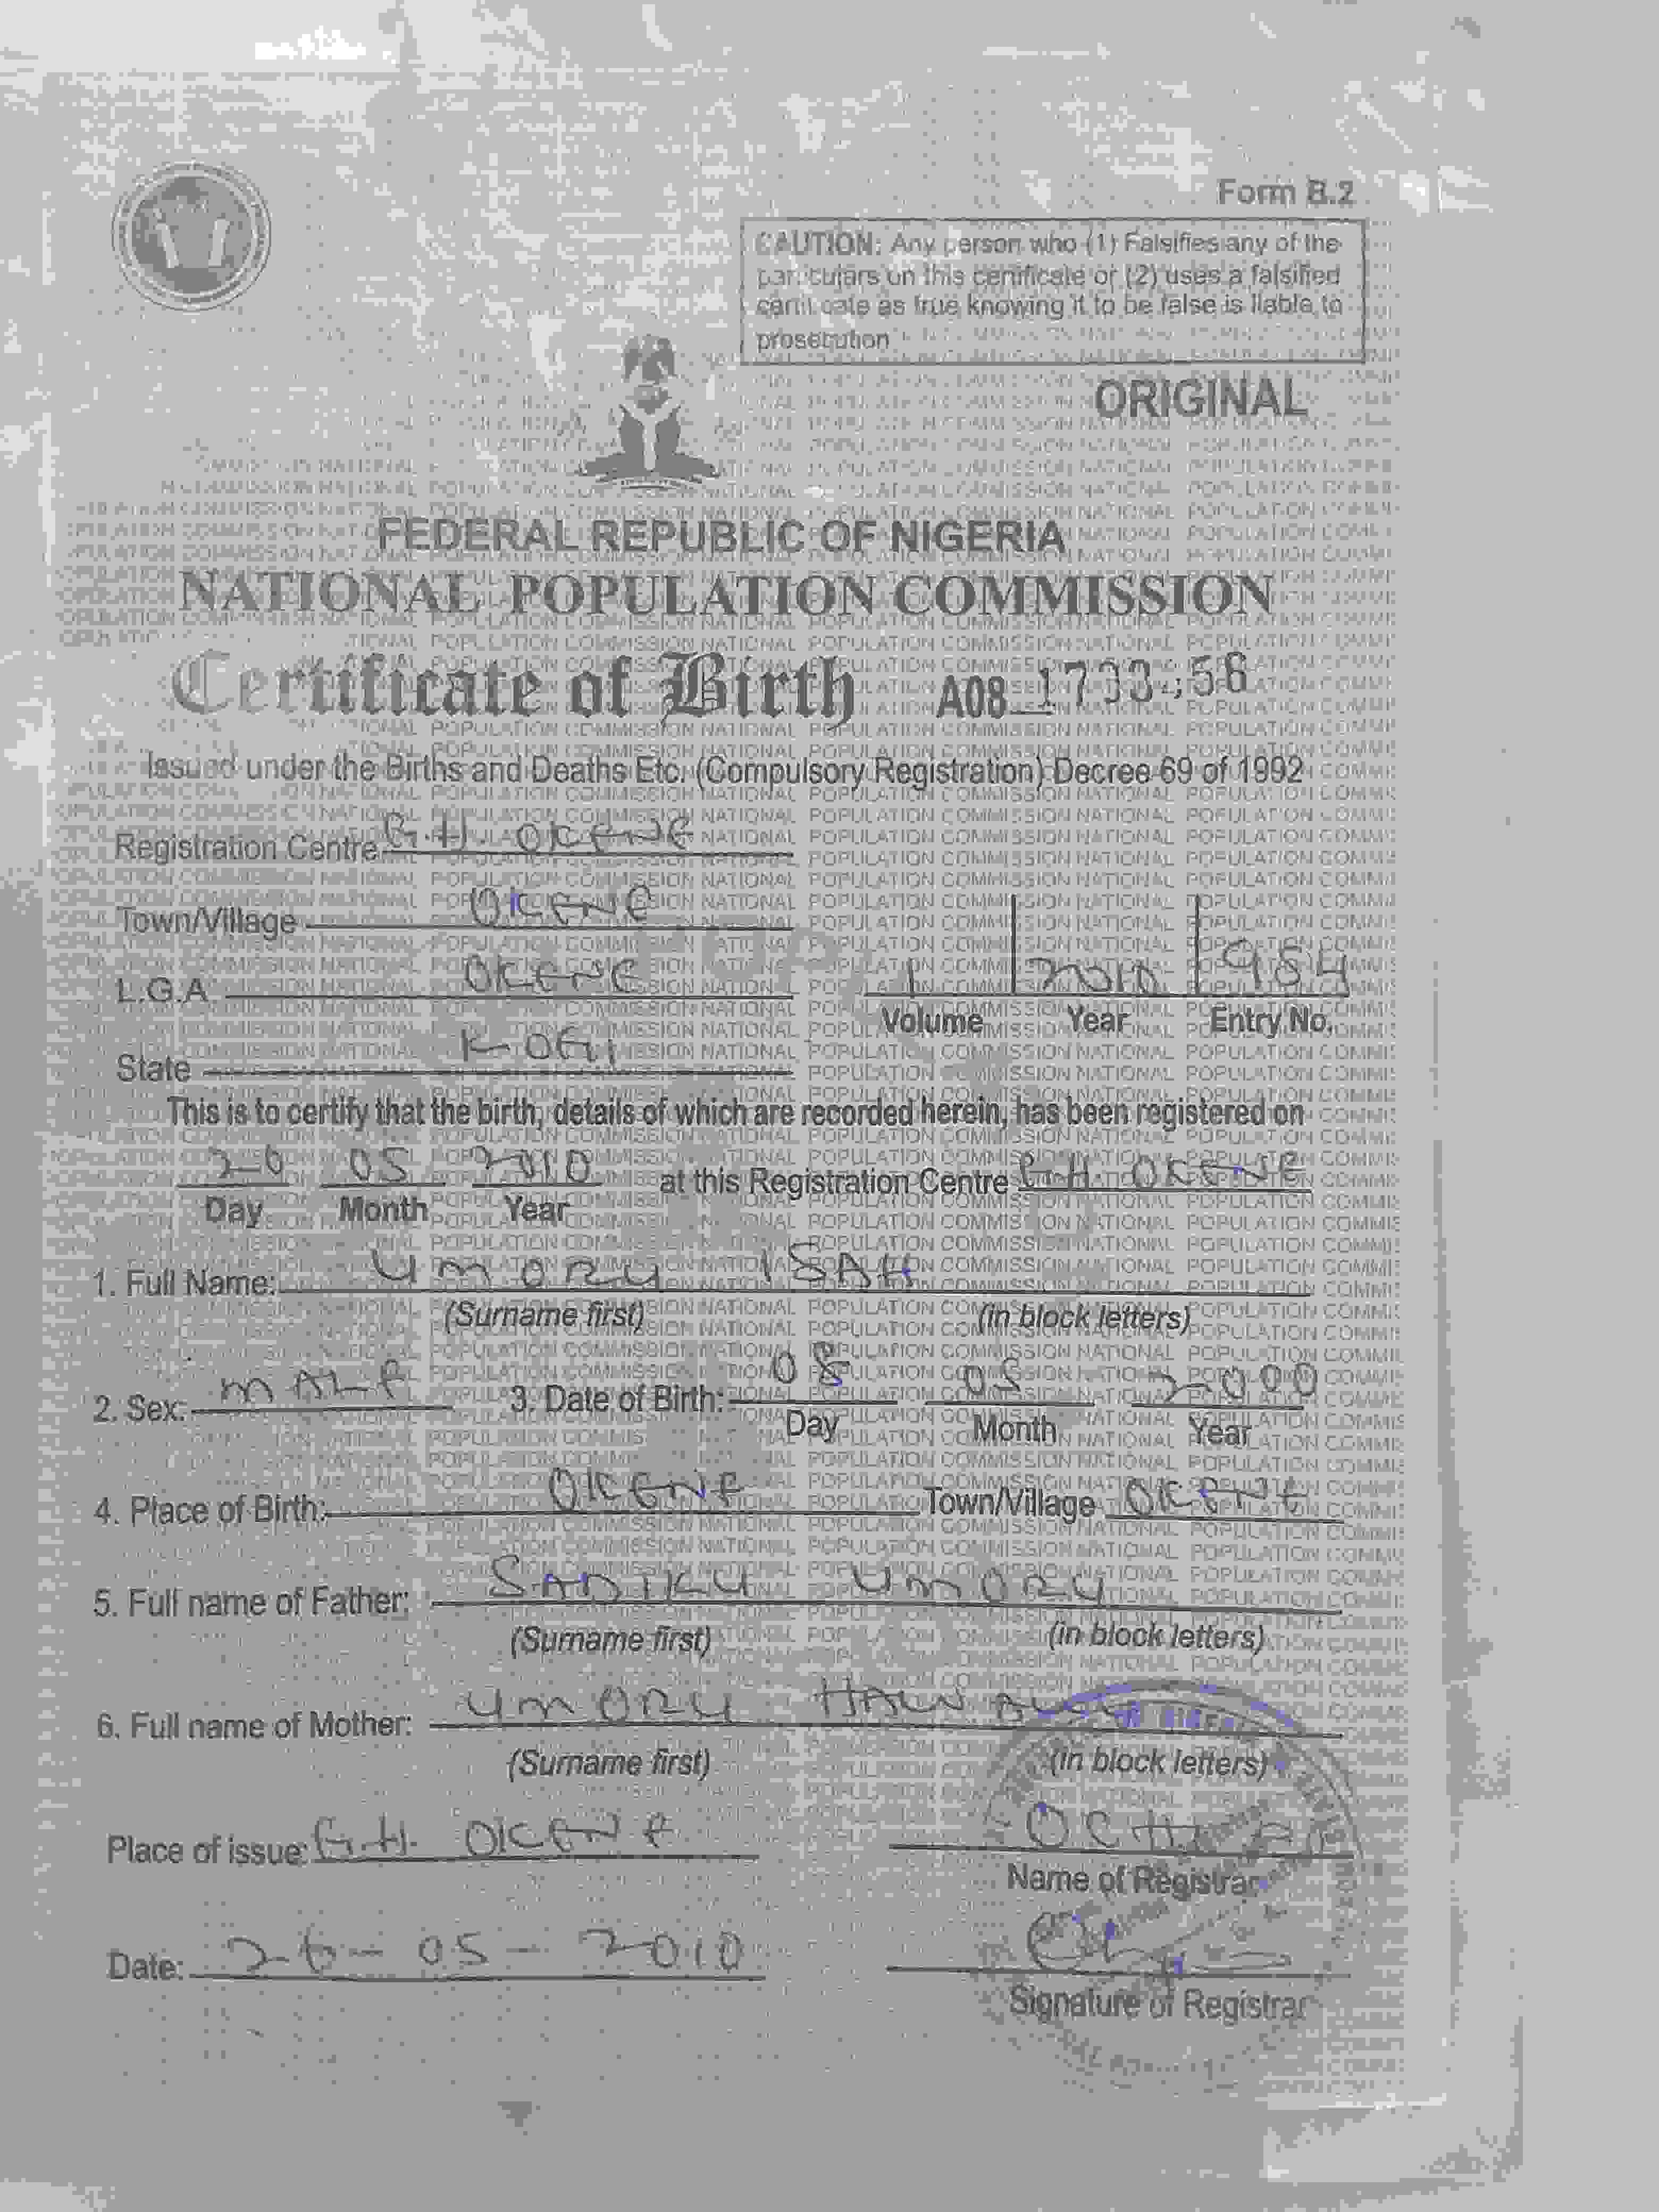 Form B.2
CAUTION: Any person who (1) Falsifies any of the
particulars on this certificate or (2) uses a falsified
certificate as true knowing it to be false is liable to
prosecution
ORIGINAL
FEDERAL REPUBLIC OF NIGERIA
NATIONAL POPULATION COMMISSION
Certificate of Birth A08
Issued under the Births and Deaths Etc. (Compulsory Registration) Decree 69 of 1992
Registration Centre G.H. OKENE
Town/Village OKENE
L.G.A OKENE 1 2010 984
Volume Year Entry No.
State KOGI
This is to certify that the birth, details of which are recorded herein, has been registered on
26 05 2010 at this Registration Centre G.H. OKENE
Day Month Year
1. Full Name: UMORU ISAH
(Surname first) (in block letters)
2. Sex: MALE 3. Date of Birth: 08 05 2000
Day Month Year
4. Place of Birth: OKENE Town/Village OKENE
5. Full name of Father: SADIKU UMORU
(Surname first) (in block letters)
6. Full name of Mother: UMORU
(Surname first) (in block letters)
Place of issue: G.H. OKENE
Name of Registrar
Date: 26-05-2010
Signature of Registrar